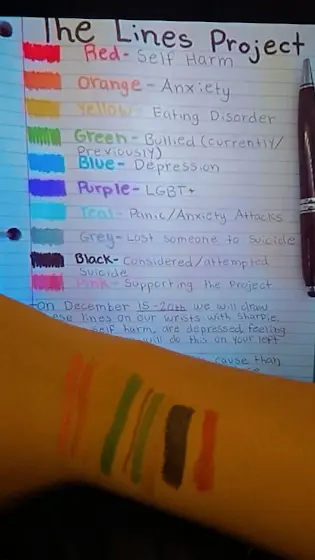 The Lines Project
Red- Self Harm
Orange - Anxiety
Yellow- Eating Disorder
Green- Bullied (currently/
Previously)
Blue- Depression
Purple- LGBT+
Teal- Panic/Anxiety Attacks
Grey- Lost someone to Suicide
Black- Considered/attempted
Suicide
Pink- Supporting the Project
on December 15-20th we will draw
lines on our wrists with sharpie.
self harm, are depressed, feeling
will do this on your left
cause than